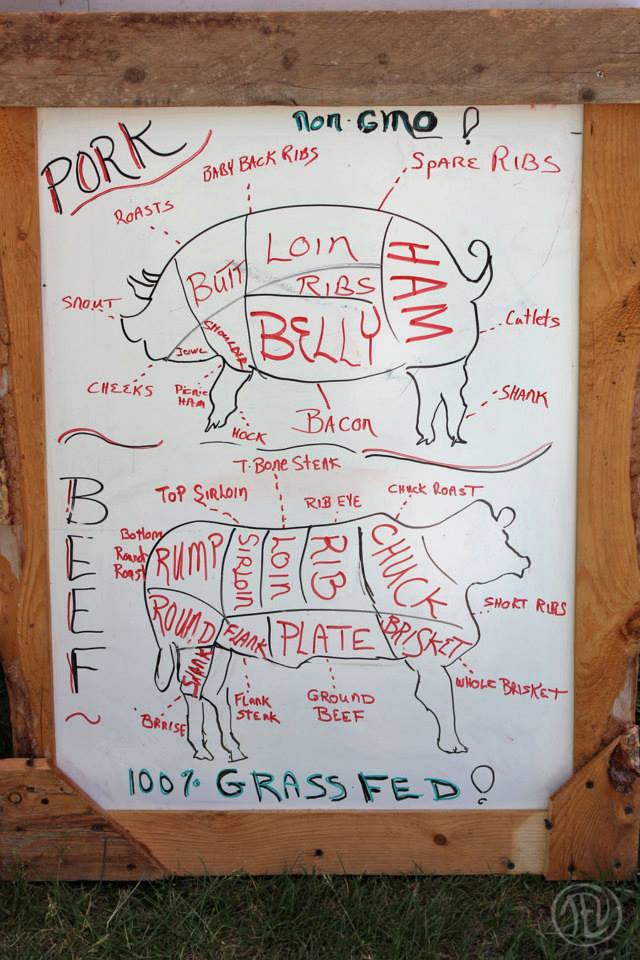 Non-GMO!
PORK
BABY BACK RIBS
SPARE RIBS
ROASTS
LOIN
BUTT
RIBS
HAM
SNOUT
SHOULDER
BELLY
Cutlets
JOWL
CHEEKS
PICNIC HAM
SHANK
BACON
HOCK
T-BONE STEAK
BEEF
TOP SIRLOIN
RIB EYE
CHUCK ROAST
Bottom
Round
Roast
RUMP
SIRLOIN
LOIN
RIB
CHUCK
SHORT RIBS
ROUND
FLANK
PLATE
BRISKET
SHANK
WHOLE BRISKET
BRAISE
FLANK
STEAK
GROUND
BEEF
100% GRASS FED!